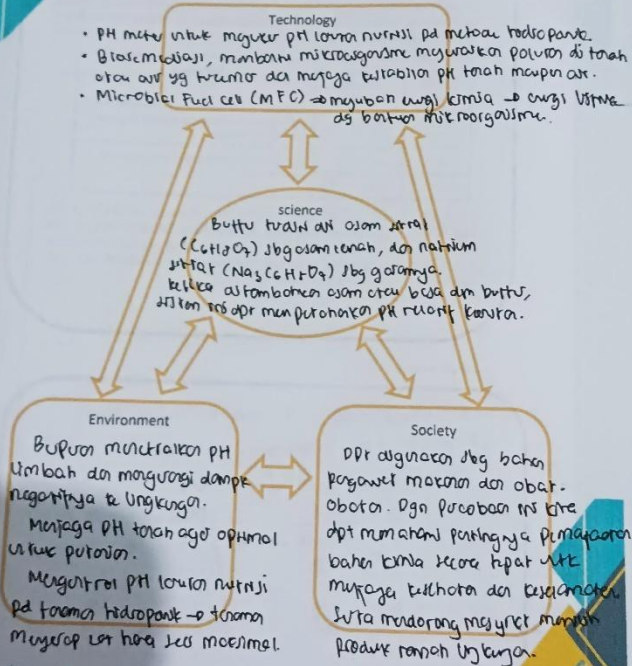 Technology
• PH meter untuk mengukur pH larutan nutrisi pd metode hidroponik.
• Bioremediasi, membantu mikroorganisme menguraikan polutan di tanah
atau air yg tercemar dan menjaga kestabilan pH tanah maupun air.
• Microbial Fuel Cell (MFC) → mengubah energi kimia → energi listrik
dg bantuan mikroorganisme.
science
Buffer terdiri dari asam sitrat
(C6H8O7) sbg asam lemah, dan natrium
sitrat (Na3C6H5O7) sbg garamnya.
ketika ditambahkan asam atau basa dlm buffer,
sistem ini dpr mempertahankan PH relatif konstan.
Environment
Buffer menetralkan PH
limbah dan mengurangi dampk
negatifnya ke lingkungan.
Menjaga PH tanah agar optimal
untuk pertanian.
Mengontrol PH larutan nutrisi
pd tanaman hidroponik → tanaman
menyerap zat hara secr maksimal.
Society
Dpt digunakan sbg bahan
pengawet makanan dan obat-
obatan. Dgn percobaan ini kita
dpt memahami pentingnya pemakaian
bahan kimia secara tepat utk
menjaga kesehatan dan keselamatan
serta mendorong masyrkt memilih
produk ramah lingkungan.